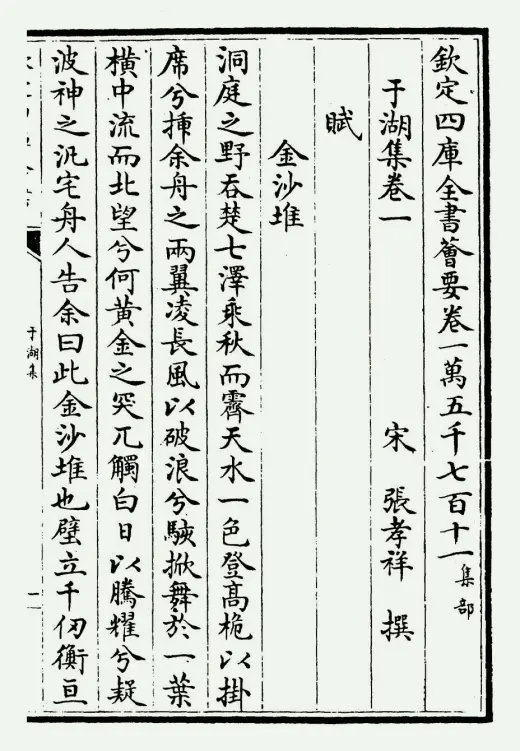 欽定四庫全書薈要卷一萬五千七百十一集部
于湖集卷一 宋 張孝祥 撰
賦
金沙堆
洞庭之野吞楚七澤乘秋而霽天水一色登髙桅以掛
席兮揷余舟之兩翼凌長風以破浪兮駭掀舞於一葉
橫中流而北望兮何黃金之突兀觸白日以騰耀兮疑
波神之汎宅舟人告余曰此金沙堆也壁立千仞衡亘
于湖集
一